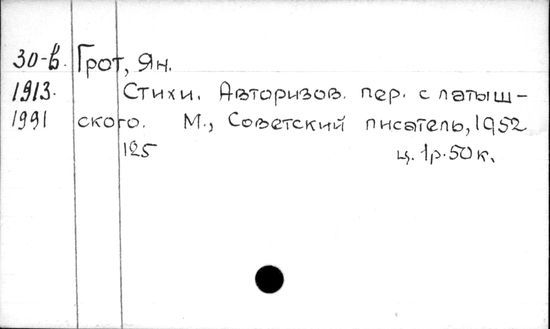 30-в. Грот, Ян.
1913. Стихи. Авторизов. пер. с латыш-
1991 ского. М., Советский писатель, 1952
125 ц. 1р. 50к.